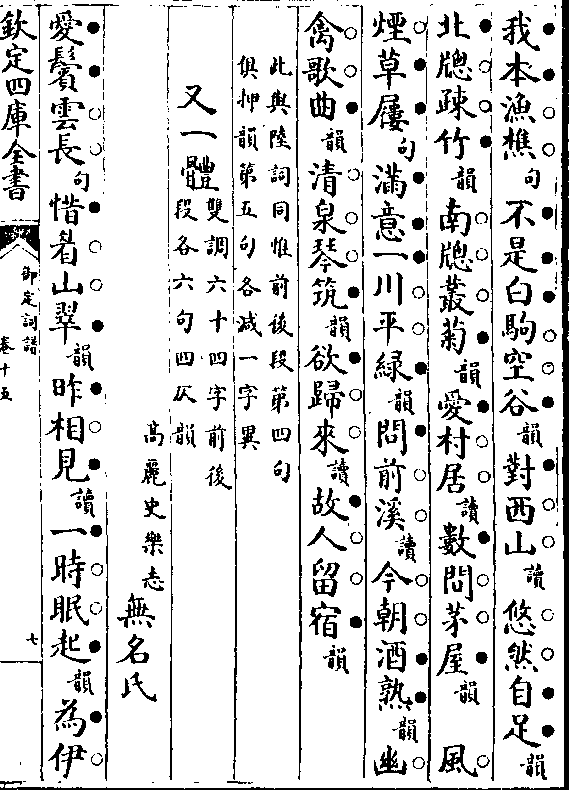 我本漁樵句不是白駒空谷韻對西山讀悠然自足韻
北牕疎竹韻南牕叢菊韻愛村居讀數間茅屋韻 風
煙草屨句滿意一川平綠韻問前溪讀今朝酒熟韻幽
禽歌曲韻清泉琴筑韻欲歸來讀故人留宿韻
此與陸詞同惟前後段第四句
俱押韻第五句各減一字異
又一體雙調六十四字前後
段各六句四仄韻
高麗史樂志無名氏
愛鬢雲長句惜眉山翠韻昨相見讀一時眠起韻為伊
欽定四庫全書
御定詞譜
卷十五
七